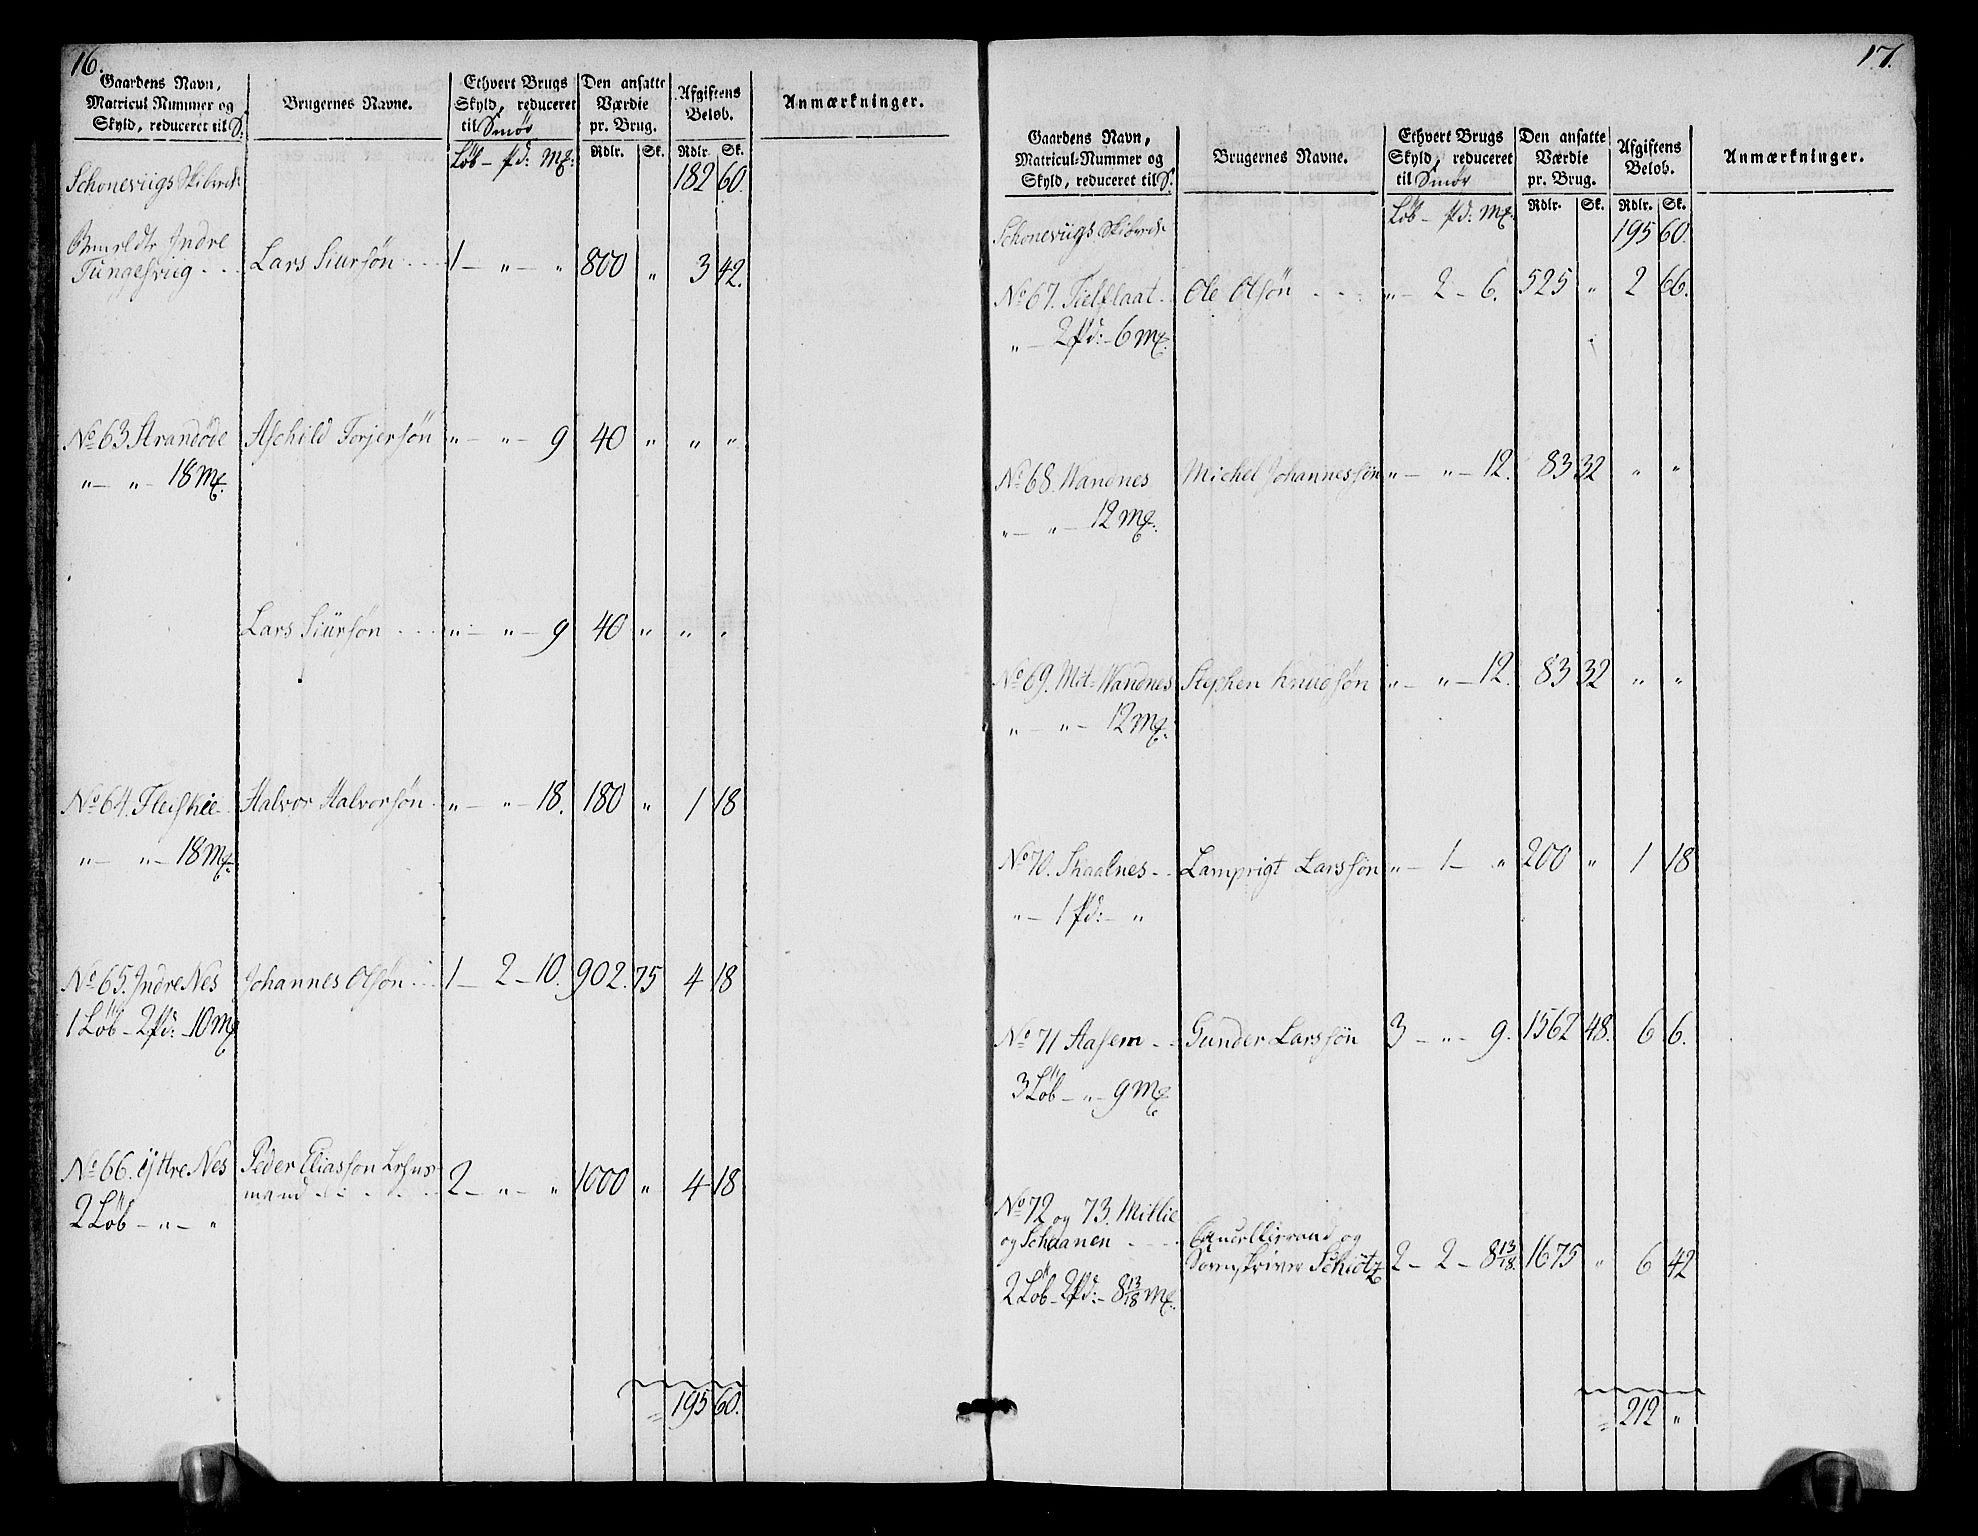 16.
Gaardens Navn, Matricul Nummer og Skyld, reduceret til S:
Brugernes Navne.
Ethvert Brugs Skyld, reduceret til Smør
Den ansatte Værdie pr. Brug.
Afgiftens Beløb.
Anmærkninger.
Løb - pd: mg: Rdlr. Sk. Rdlr. Sk.
Schoneviigs Skibrede 182 60.
Indre
Tungesviig - - Lars Siursøn - - - 1 - " - " 800 " 3 42.
No 63 Strandøde Aschild Torjersøn " - " - 9 40 " " "
" - " - 18 mg.
Lars Siursøn - - - " - " - 9 40 " " "
No 64. Fleiskie Halvor Halvorsøn " - " - 18. 180 " 1 18
" - " - 18 mg.
No 65. Indre Nes Johannes Olsøn - - 1 - 2 - 10. 902. 75 4 18
1 Løb - 2 pd: - 10 mg
No 66. Yttre Nes Peder Eliassøn Lehns
mand - - - - 2 - " - " 1000 " 4 18
2 Løb - " - "
195 60.
17.
Gaardens Navn, Matricul-Nummer og Skyld, reduceret til S.
Brugernes Navne.
Ethvert Brugs Skyld, reduceret til Smør
Den ansatte Værdie pr. Brug.
Afgiftens Beløb.
Anmærkninger.
Løb - pd: mg. Rdlr. Sk. Rdlr. Sk.
Schoneviigs Skibrede 195 60.
No 67. Fielflaat Ole Olsøn - - - " - 2 - 6. 525 " 2 66.
" - 2 pd: - 6 mg.
No 68. Wandnes Michel Johannessøn " - " - 12. 83 32 " "
" - " - 12 mg.
No 69. Mit-Wandnes Stephen Knudsøn " - " - 12. 83 32 " "
" - " - 12 mg.
No 70. Skaalnes - - Lamprigt Larssøn " - 1 - " 200 " 1 18
" - 1 pd: - "
No 71 Aasem - - Gunder Larssøn 3 - " - 9. 1562 48. 6 6.
3 Løb - " - 9 mg
No 72 og 73. Millie
og Schaanen - - - og
Sorenskriver Schiøtz 2 - 2 - 8 13/18. 1675 " 6 42
2 Løb - 2 pd: - 8 13/18 mg.
212 "